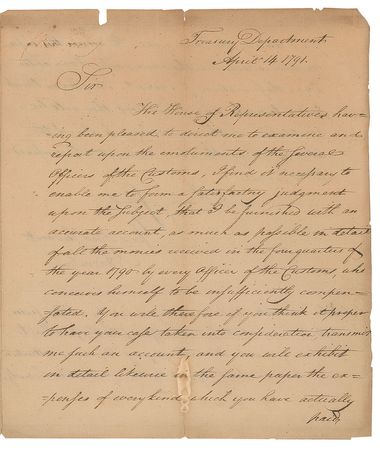 Treasury Department
April 14 1791.
Sir
The House of Representatives hav=
=ing been pleased to direct me to examine and
report upon the emoluments of the several
Officers of the Customs, I find it necessary to
enable me to form a satisfactory judgment
upon the Subject, that I be furnished with an
accurate account, as much as possible in detail
of all the monies received in the four quarters of
the year 1790 by every Officer of the Customs, who
conceives himself to be insufficiently compen=
=sated. You will therefore if you think it proper
to have your case taken into consideration, transmit
me such an account, and you will exhibit
in detail likewise in the same paper the ex=
=penses of every kind which you have actually
paid